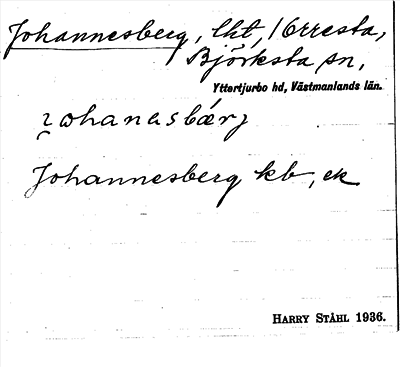 Johannesberg, lht, / Orresta,
Björksta sn,
Yttertjurbo hd, Västmanlands län.
Johannesberg kb, ek
HARRY STÅHL 1936.